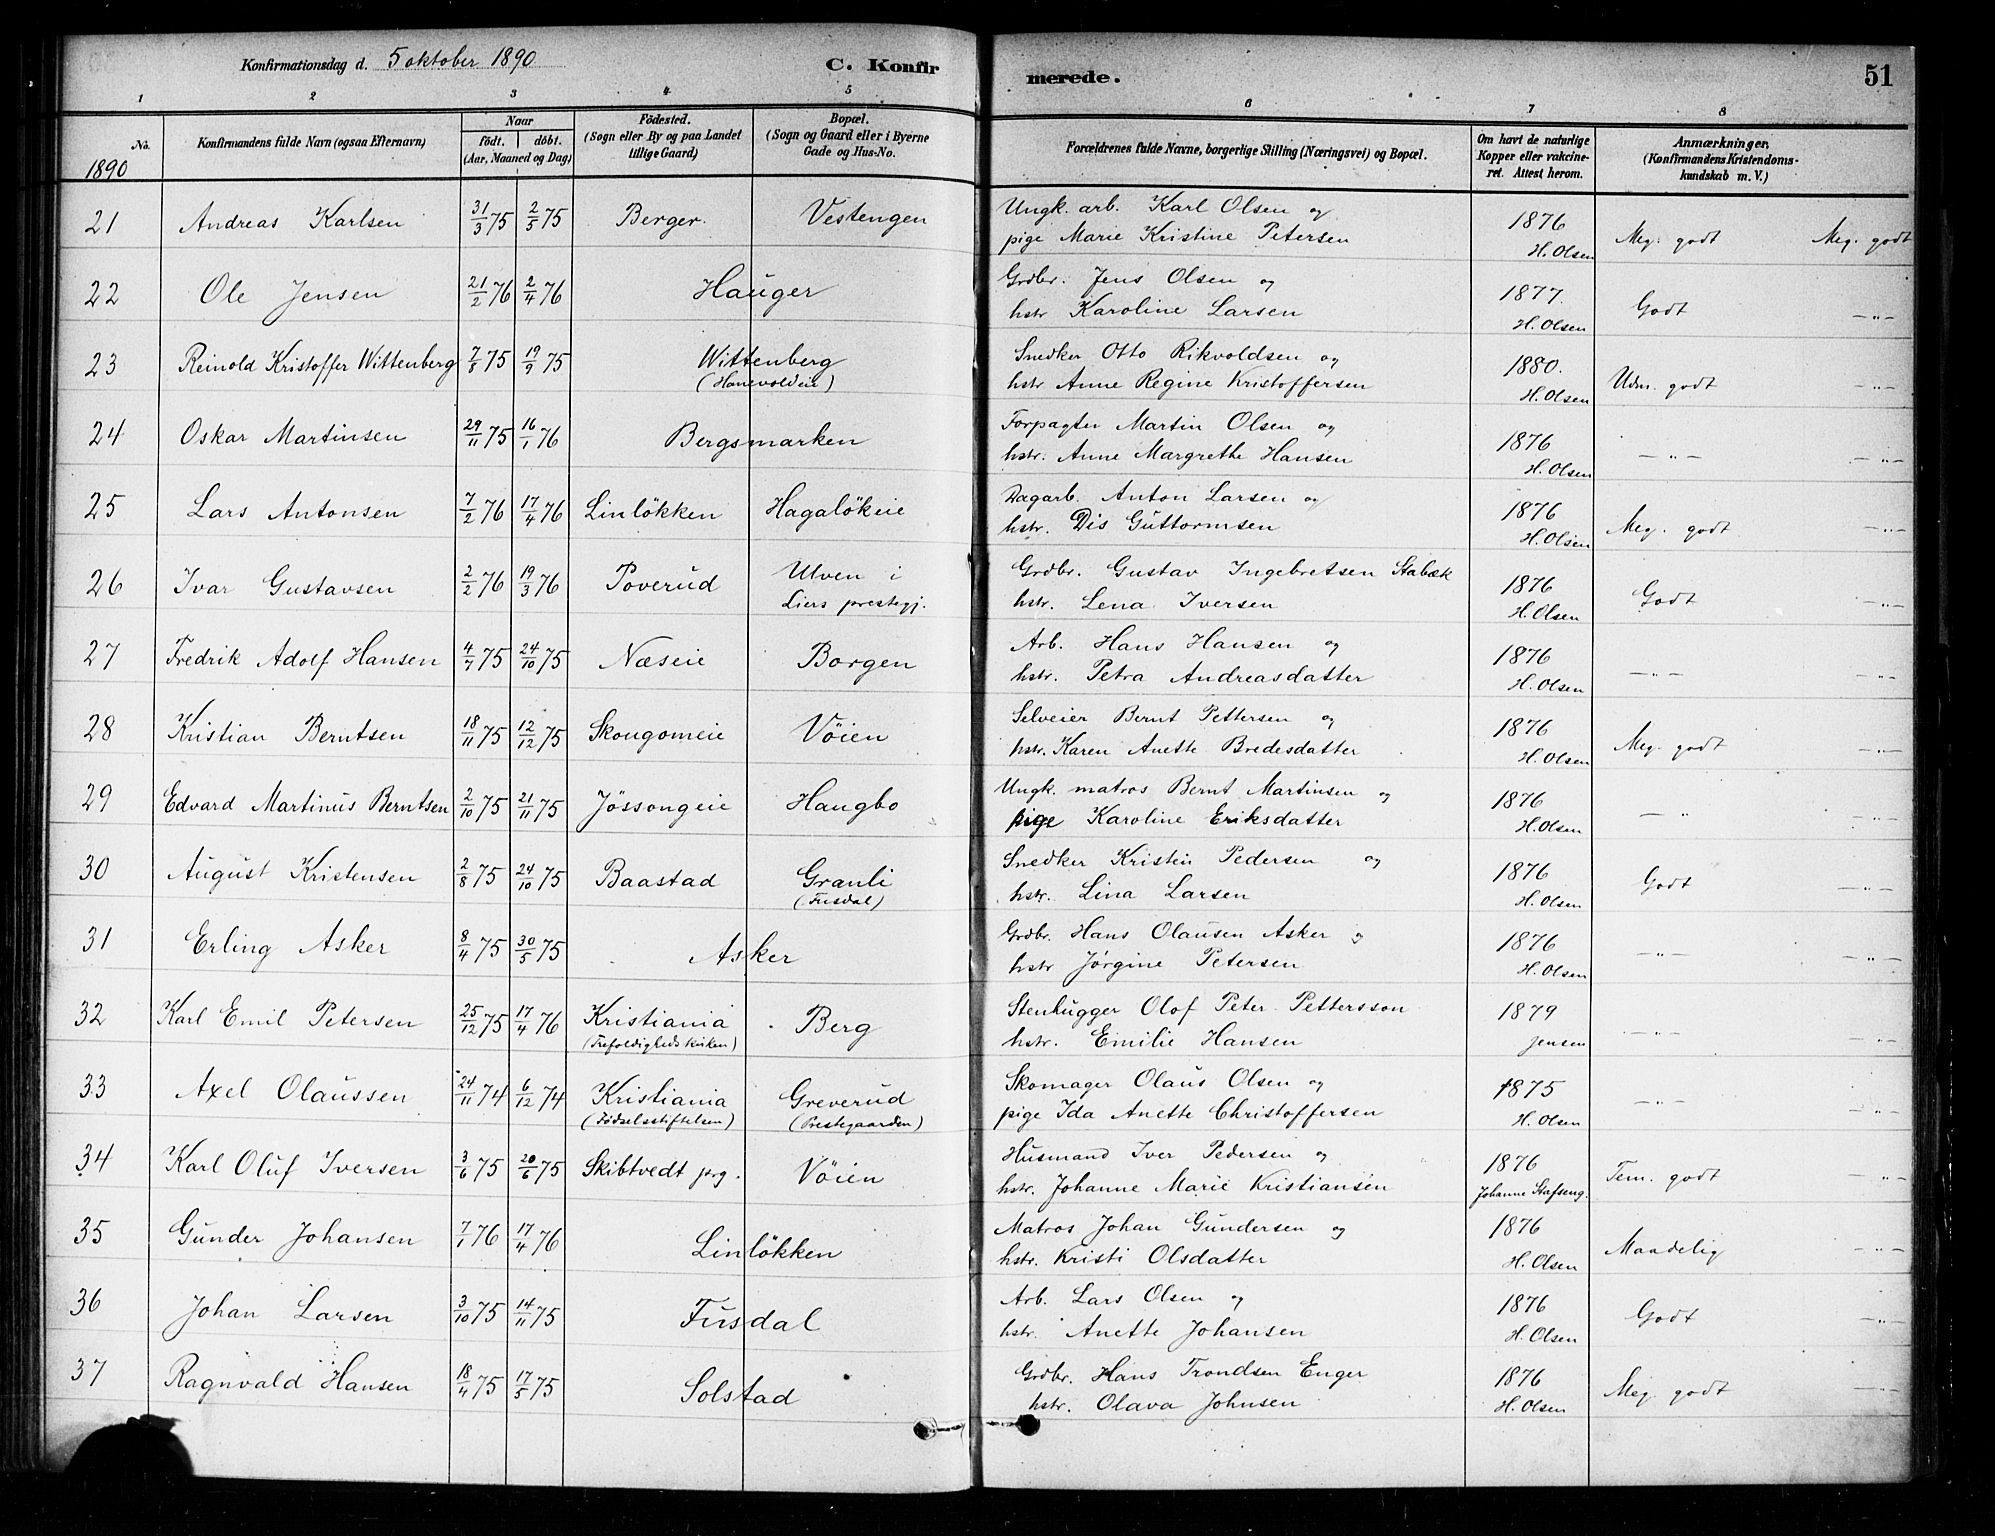 Konfirmationsdag d. 5 oktober 1890
C. Konfir
merede.
51
1
2
3
4
5
6
7
8
No.
Konfirmandens fulde Navn (ogsaa Efternavn)
Naar
födt. döbt.
(Aar, Maaned og Dag)
Födested.
(Sogn eller By og paa Landet
tillige Gaard)
Bopæl.
(Sogn og Gaard eller i Byerne
Gade og Hus-No.
Forældrenes fulde Navne, borgerlige Stilling (Næringsvei) og Bopæl.
Om havt de naturlige
Kopper eller vakcine-
ret. Attest herom.
Anmærkninger,
(Konfirmandens Kristendoms-
kundskab m. V.)
1890
21 Andreas Karlsen 31/3 75 2/5 75 Berger. Vestengen Ungk. arb. Karl Olsen og 1876
pige Marie Kristine Petersen H. Olsen Meg. godt Meg. godt
22 Ole Jensen 21/2 76 2/4 76 Hauger Grdbr. Jens Olsen og 1877.
hstr Karoline Larsen H. Olsen Godt —"—
23 Reinold Kristoffer Wittenberg 7/8 75 19/9 75 Wittenberg Snedker Otto Rikvoldsen og 1880.
(Hanevoldeie) hstr Anne Regine Kristoffersen H. Olsen Udm. godt —"—
24 Oskar Martinsen 29/11 75 16/1 76 Bergsmarken Forpagter Martin Olsen og 1876
hstr. Anne Margrethe Hansen H. Olsen —"— —"—
25 Lars Antonsen 7/2 76 17/4 76 Linlökken Hagalökeie Dagarb. Anton Larsen og 1876
hstr. Dis Guttormsen H. Olsen Meg. godt —"—
26 Ivar Gustavsen 2/2 76 19/3 76 Poverud Ulven i Grdbr. Gustav Ingebretsen Stabæk 1876
Liers prestegj. hstr. Lena Iversen H. Olsen Godt —"—
27 Fredrik Adolf Hansen 4/7 75 24/10 75 Næseie Borgen Arb. Hans Hansen og 1876
hstr. Petra Andreasdatter H. Olsen —"— —"—
28 Kristian Berntsen 18/11 75 12/12 75 Skougomeie Vöien Selveier Bernt Pettersen og 1876
hstr. Karen Anette Bredesdatter H. Olsen Meg. godt —"—
29 Edvard Martinus Berntsen 2/10 75 21/11 75 Jössongeie Haugbo Ungk. matros Bernt Martinsen og 1876
pige Karoline Eriksdatter H. Olsen —"— —"—
30 August Kristensen 2/8 75 24/10 75 Baastad Granli Snedker Kristen Pedersen og 1876
(Fusdal) hstr. Lina Larsen H. Olsen Godt —"—
31 Erling Asker 8/4 75 30/5 75 Asker Grdbr. Hans Olausen Asker og 1876
hstr Jörgine Petersen H. Olsen —"— —"—
32 Karl Emil Petersen 25/12 75 17/4 76 Kristiania Berg Stenhugger Olof Peter Pettersson 1879
(Trefoldigheds kirken) hstr. Emilie Hansen Jensen —"— —"—
33 Axel Olaussen 24/11 74 6/12 74 Kristiania Greverud Skomager Olaus Olsen og 1875
(Födselsstiftelsen) (Prestegaarden) pige Ida Anette Christoffersen H. Olsen —"— —"—
34 Karl Oluf Iversen 3/6 75 20/6 75 Skibtvedt prg. Vöien Husmand Iver Pedersen og 1876
hstr. Johanne Marie Kristiansen Johanne Stafseng. Tem. godt —"—
35 Gunder Johansen 7/1 76 17/4 76 Linlökken Matros Johan Gundersen og 1876
hstr. Kristi Olsdatter H. Olsen Maadelig —"—
36 Johan Larsen 3/10 75 14/11 75 Fusdal Arb. Lars Olsen og 1876
hstr. Anette Johansen H. Olsen Godt —"—
37 Ragnvald Hansen 18/4 75 17/5 75 Solstad Grdbr. Hans Trondsen Enger 1876
hstr. Olava Johnsen H. Olsen Meg. godt —"—